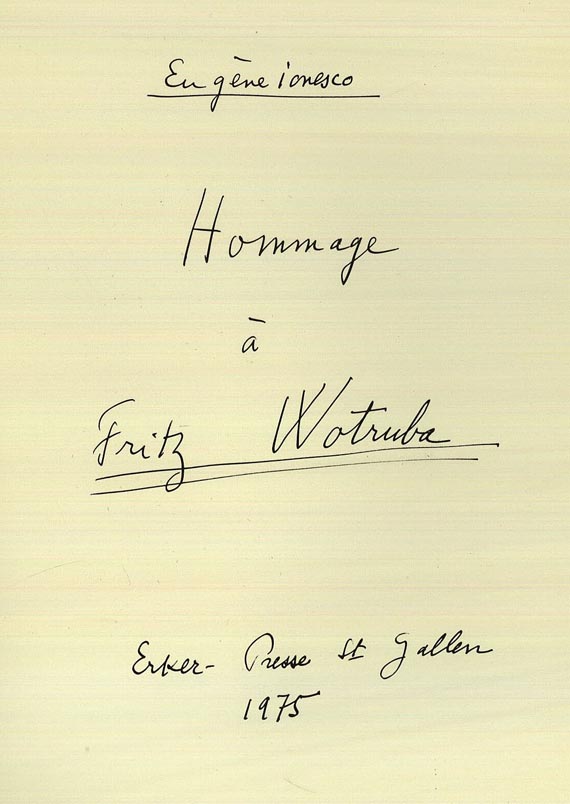 Eugène ionesco
Hommage
à
Fritz Wotruba
Erker-Presse St Gallen
1975